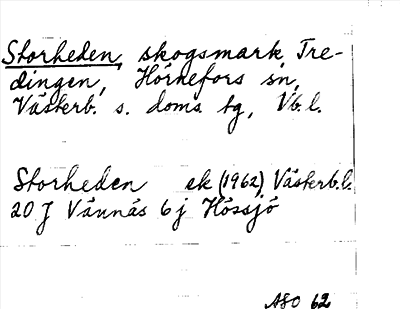 Storheden, skogsmark, Tre-
dingen, Hörnefors sn,
Västerb. s. doms tg, Vb. l.
Storheden ek (1962) Västerb. l.
20 J Vännäs 6 j Hössjö
ASO 62